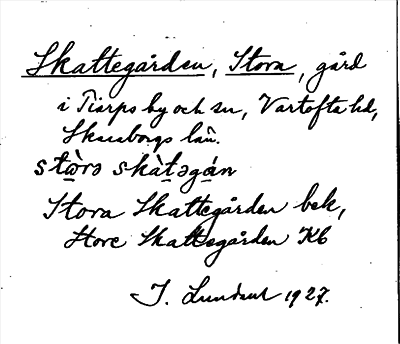 Skattegården, Stora, gård
i Tiarps by och sn, Vartofta hd,
Skaraborgs län.
stɷ̀rə skàtəgán
Stora Skattegården bek,
Store Skattegården Kb
J. Lundahl 1927.